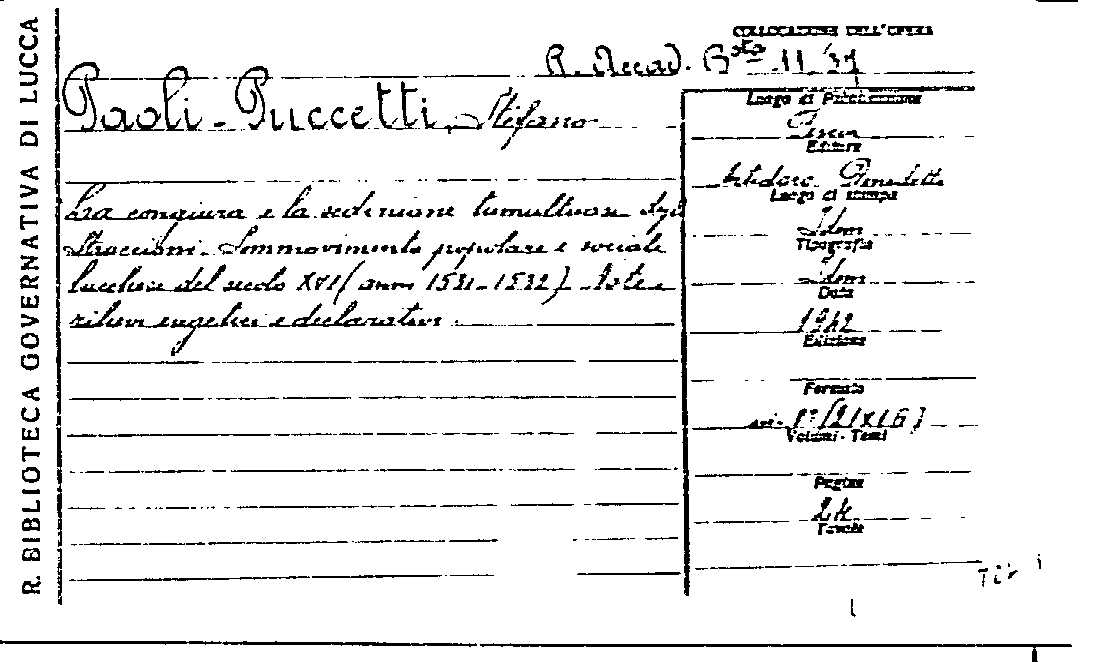 R. BIBLIOTECA GOVERNATIVA DI LUCCA
COLLOCAZIONE DELL'OPERA
R. Accad. Bsta 11.
Paoli-Puccetti, Stefano
La congiura e la sedizione tumultuosa degli
Straccioni. Sommovimento popolare e sociale
lucchese del secolo XVI (anni 1531-1532) Note e
rilievi
Luogo di Pubblicazione
Pescia
Editore
Artidoro Benedetti
Luogo di stampa
Idem
Tipografia
Idem
Data
1942
Edizione
Formato
in-8° (21x16)
Volumi - Tomi
Pagine
24
Tavole